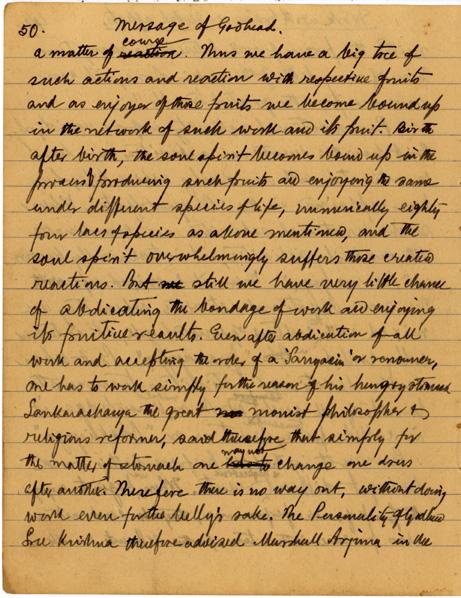 50. Message of Godhead.
course
a matter of reaction. Thus we have a big tree of
such actions and reaction with respective fruits
and as enjoyer of those fruits we become bound up
in the network of such work and its fruit. Birth
after birth, the soul spirit becomes bound up in the
process of producing such fruits and enjoying the same
under different species of life, numerically eighty
four lacs of species as above mentioned, and the
soul spirit overwhelmingly suffers those created
reactions. But still we have very little chance
of abdicating the bondage of work and enjoying
its fruitive results. Even after abdication of all
work and accepting the order of a 'Sanyasin' or renouncer,
one has to work simply for the reason of his hungry stomach
Sankaracharya the great monist philosopher &
religious reformer, said therefore that simply for
may not
the matter of stomach one change one dress
after another. Therefore there is no way out, without doing
work even for the belly's sake. The Personality of Godhead
Sree Krishna therefore advised Marshall Arjuna in the